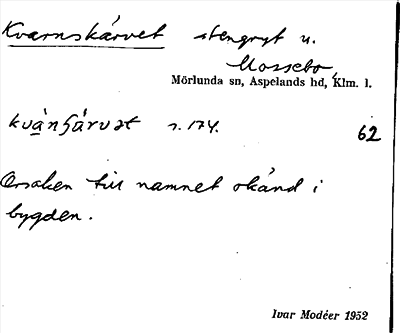 Kvarnskärvet stengryt u.
Mossebo
Mörlunda sn, Aspelands hd, Klm. l.
kvȧnʃärvət r. 174. 62
Orsaken till namnet okänd i
bygden.
Ivar Modéer 1952